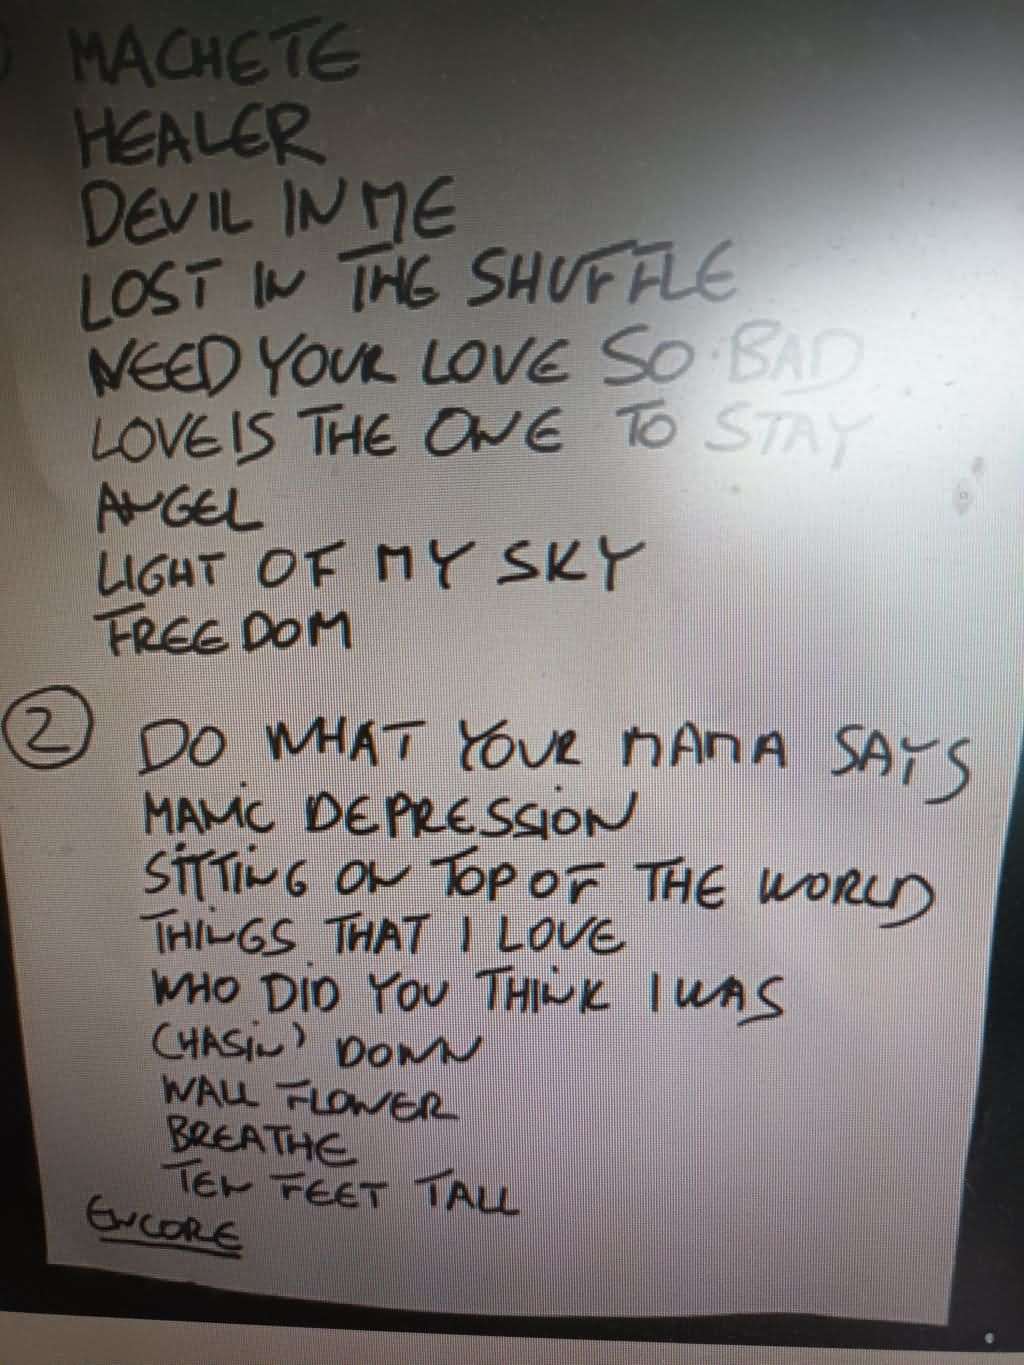 MACHETE
HEALER
DEVIL IN ME
LOST IN THE SHUFFLE
NEED YOUR LOVE SO BAD
LOVE IS THE ONE TO STAY
ANGEL
LIGHT OF MY SKY
FREEDOM
2 DO WHAT YOUR MAMA SAYS
MANIC DEPRESSION
SITTING ON TOP OF THE WORLD
THINGS THAT I LOVE
WHO DID YOU THINK I WAS
CHASIN' DOWN
WALL FLOWER
BREATHE
TEN FEET TALL
ENCORE